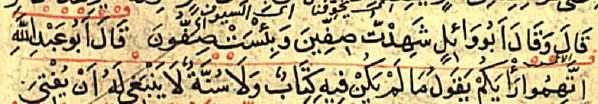 قَالَ وَقَالَ اَبُو وَائِلٍ شَهِدْتُ صِفِّينَ وَبِئْسَتْ صِفُّونَ قَالَ اَبُو عَبْدِ اللهِ
اتَّهِمُوا رَأْيَكُمْ يَقُولُ مَا لَمْ يَكُنْ فِيهِ كِتَابٌ وَلَا سُنَّةٌ لَا يَنْبَغِي لَهُ اَنْ يُفْتِيَ